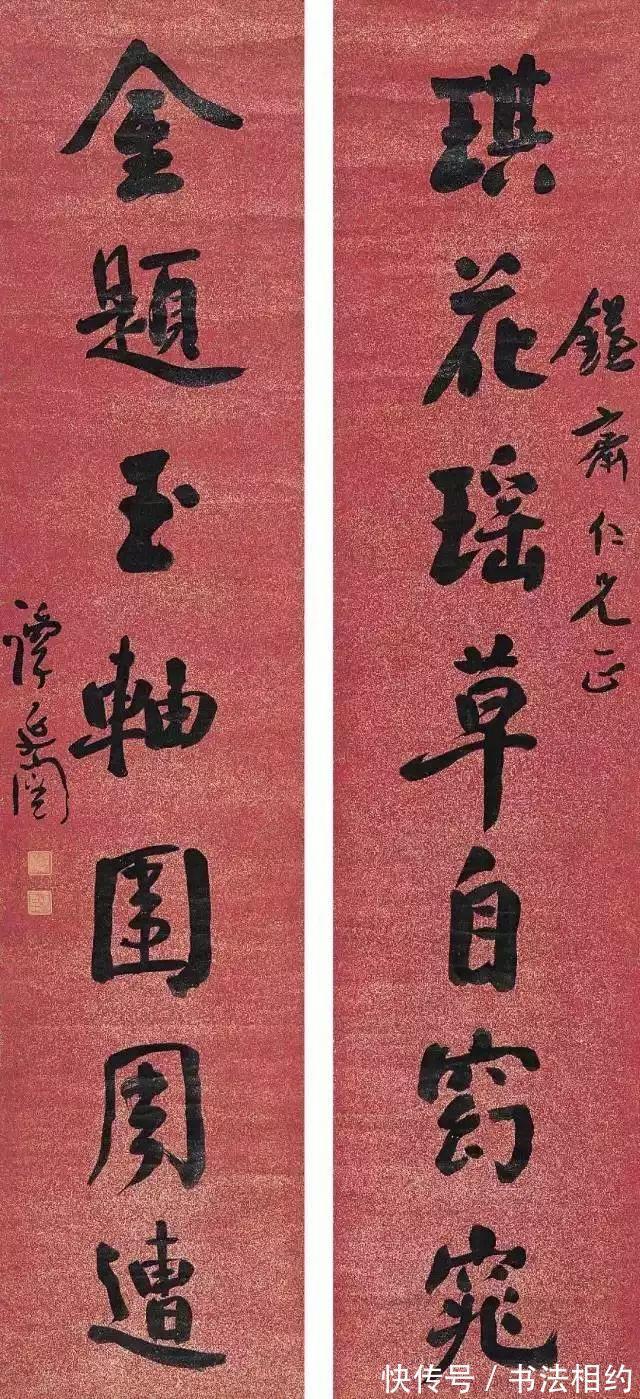 琪花瑶草自窈窕
齋仁兄正
金題玉軸圍周遭
譚延闓
快传号/书法相约